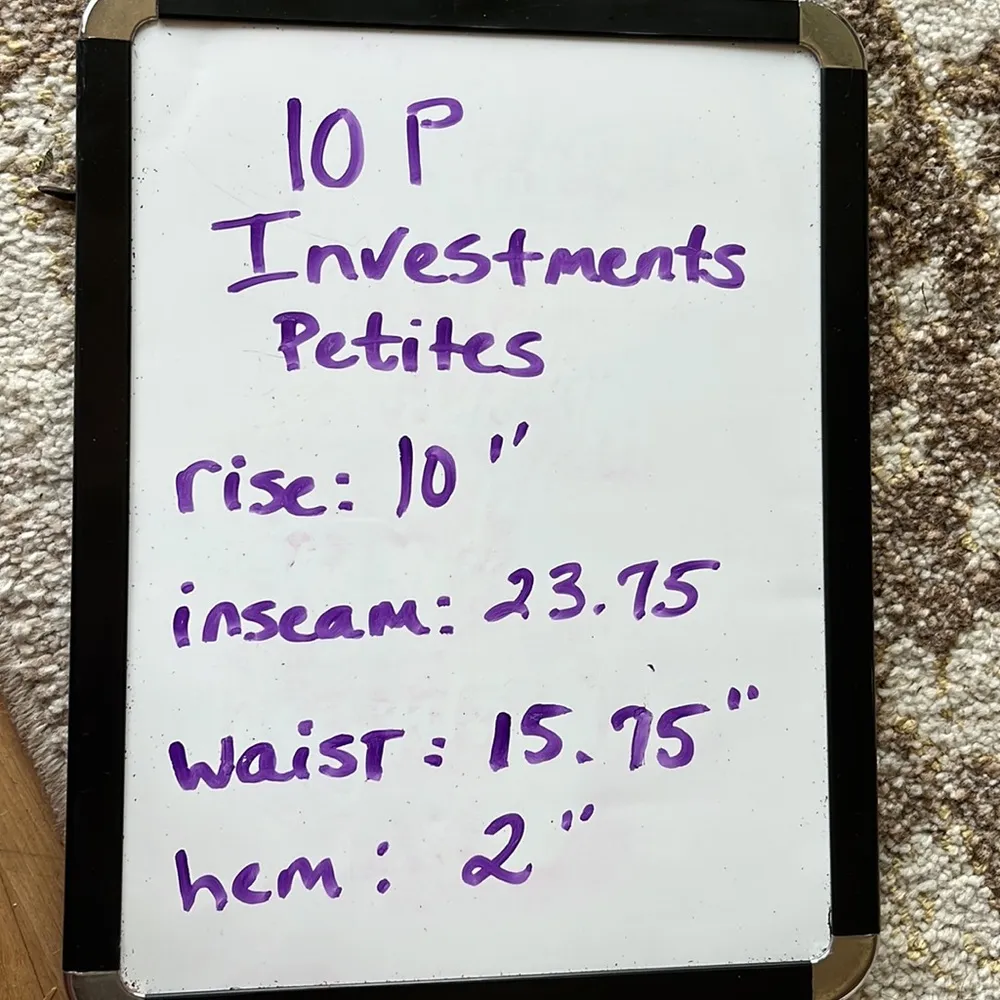 10 P
Investments
Petites
rise: 10"
inseam: 23.75
Waist: 15.75"
hem: 2"